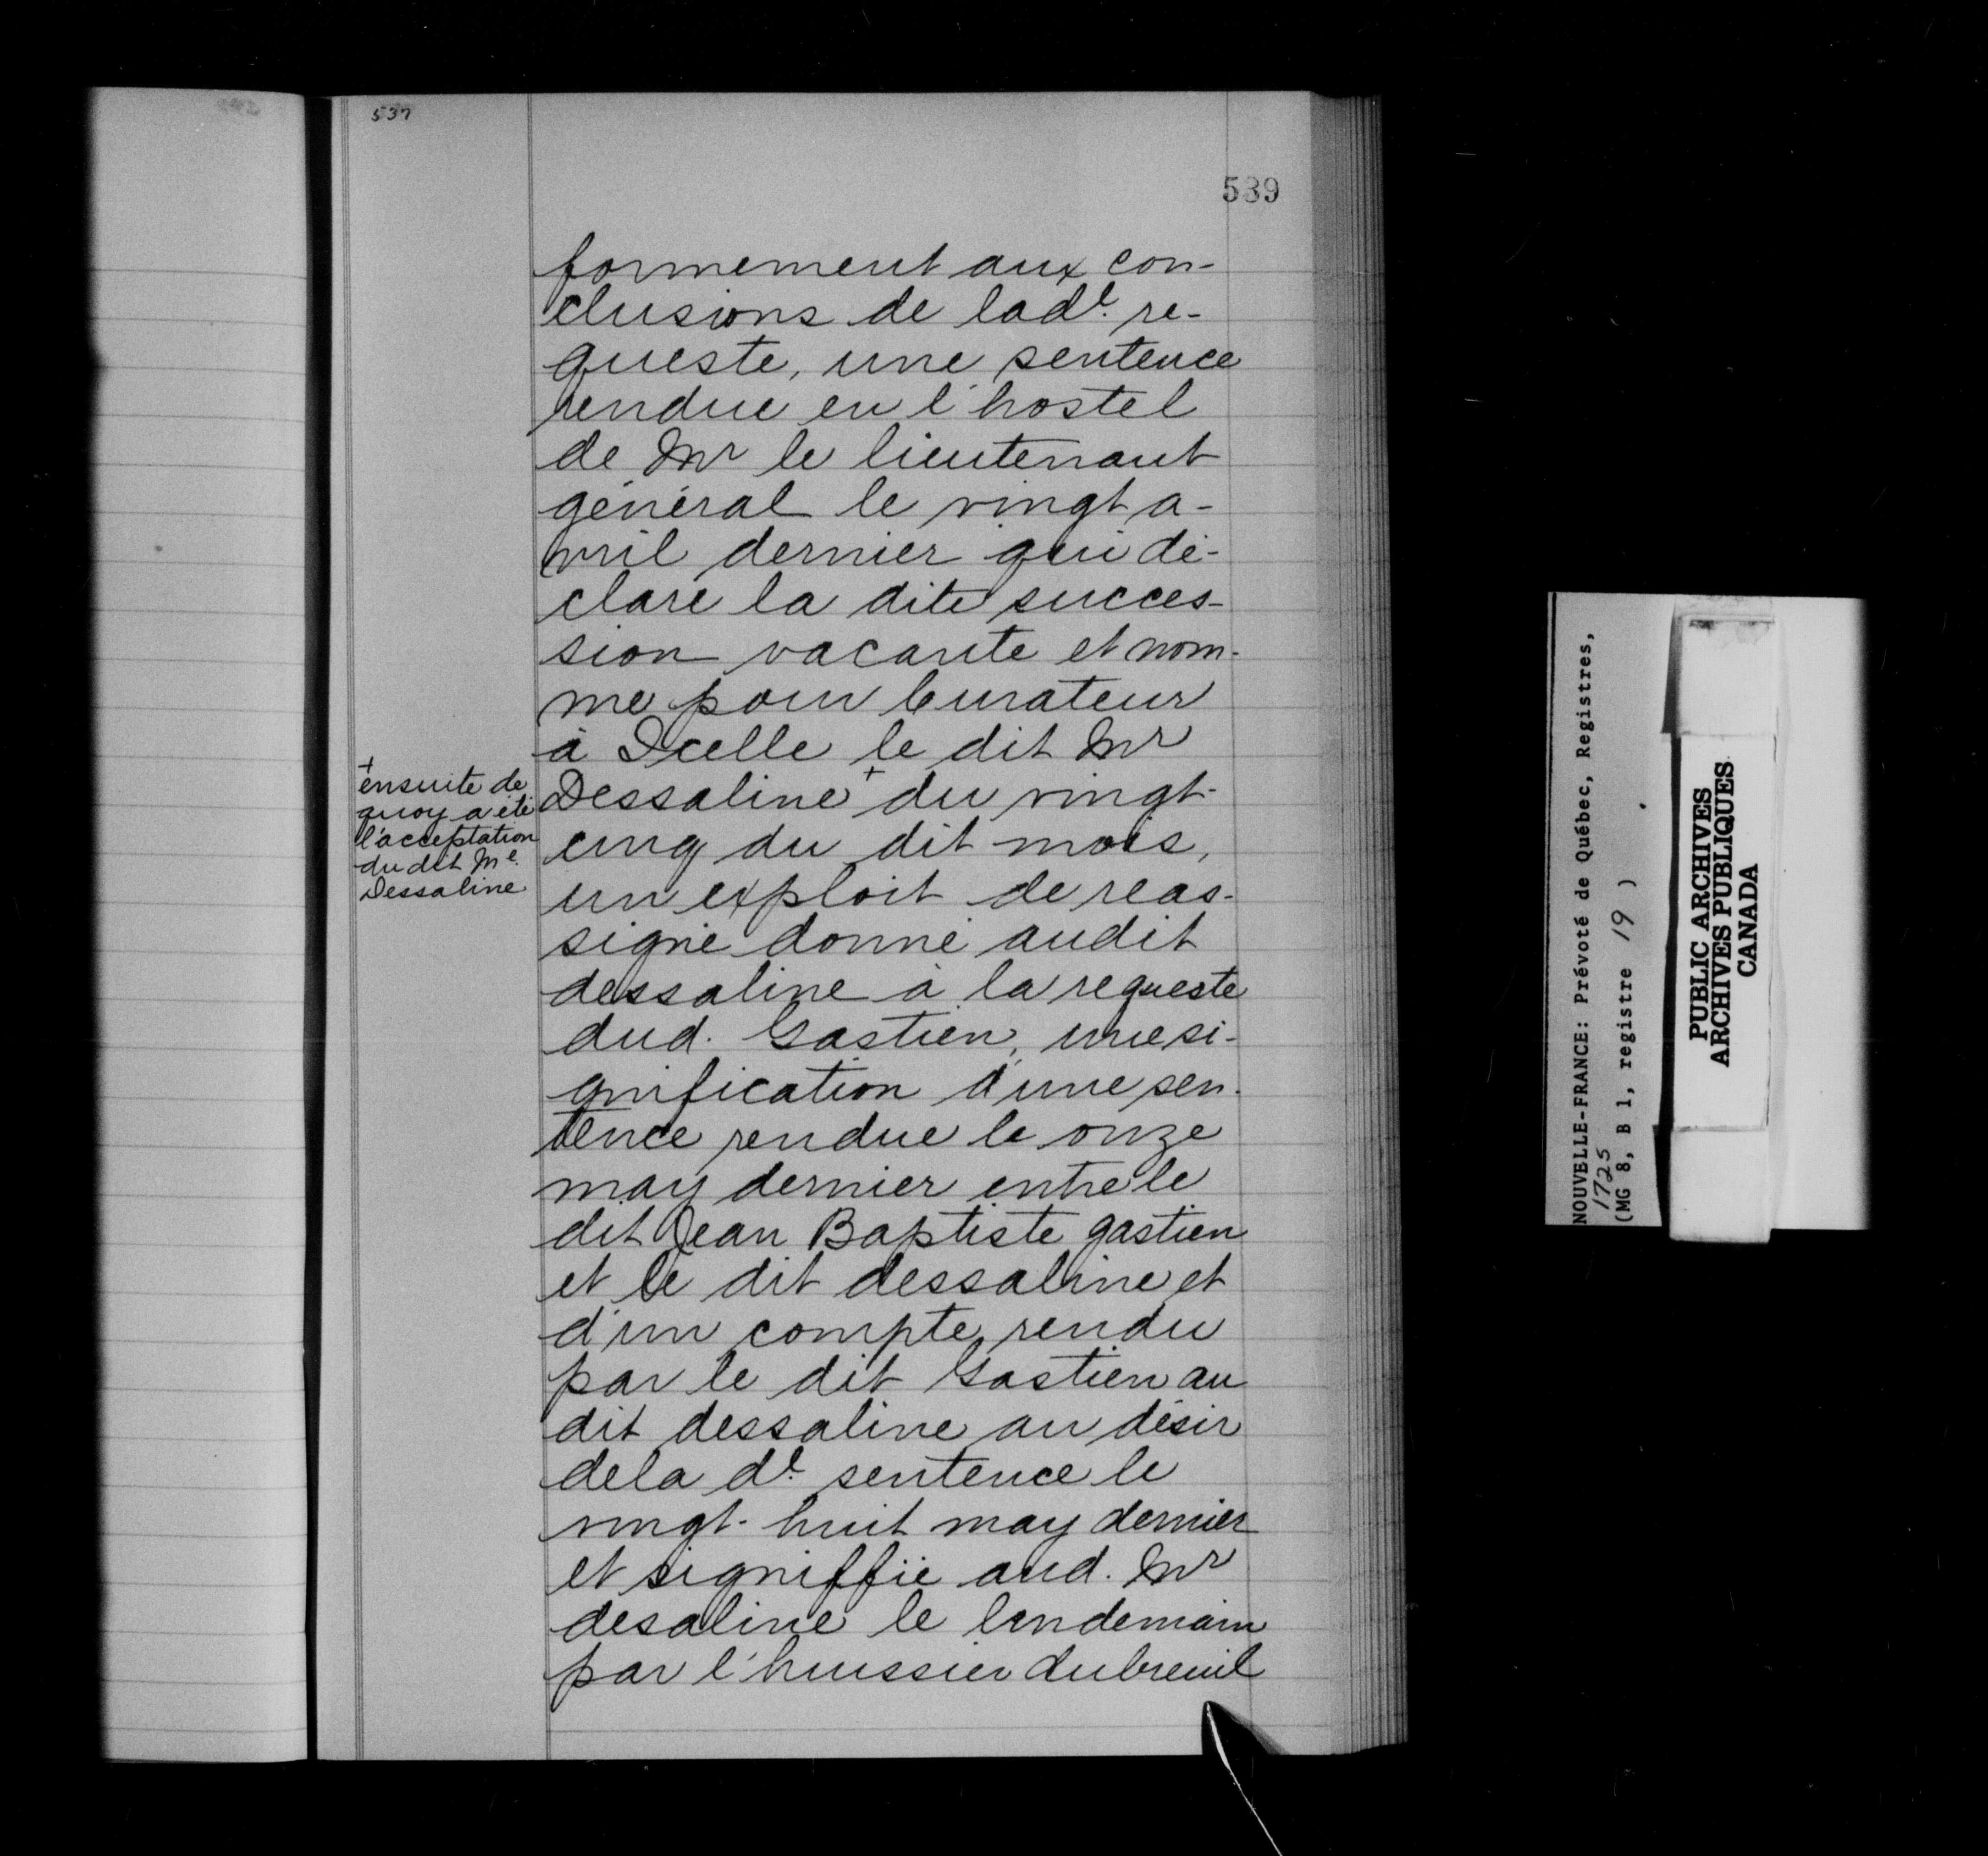 537
539
formement aux con-
clusions de lad.e re-
queste, une sentence
rendue en l'hostel
de Mr le lieutenant
général le vingt a-
vril dernier qui dé-
clare la dite succes-
sion vacante et nom-
me pour Curateur
à Icelle le dit Mr
Dessaline + du vingt-
cinq du dit mois,
un exploit de reas-
signé donné audit
dessaline à la requeste
dud. Gastien, une si-
gnification d'une sen-
tence rendue le onze
may dernier entre le
dit Jean Baptiste gastien
et le dit dessaline et
d'un compte rendu
par le dit Gastien au
dit dessaline au désir
dela d.e sentence le
vingt-huit may dernier
et signiffié aud. Mr
desaline le lendemain
par l'huissier dubreuil
+
ensuite de
quoy a été
l'acceptation
du dit Me.
Dessaline
NOUVELLE-FRANCE: Prévoté de Québec, Registres,
1725
(MG 8, B 1, registre 19 ) .
PUBLIC ARCHIVES
ARCHIVES PUBLIQUES
CANADA